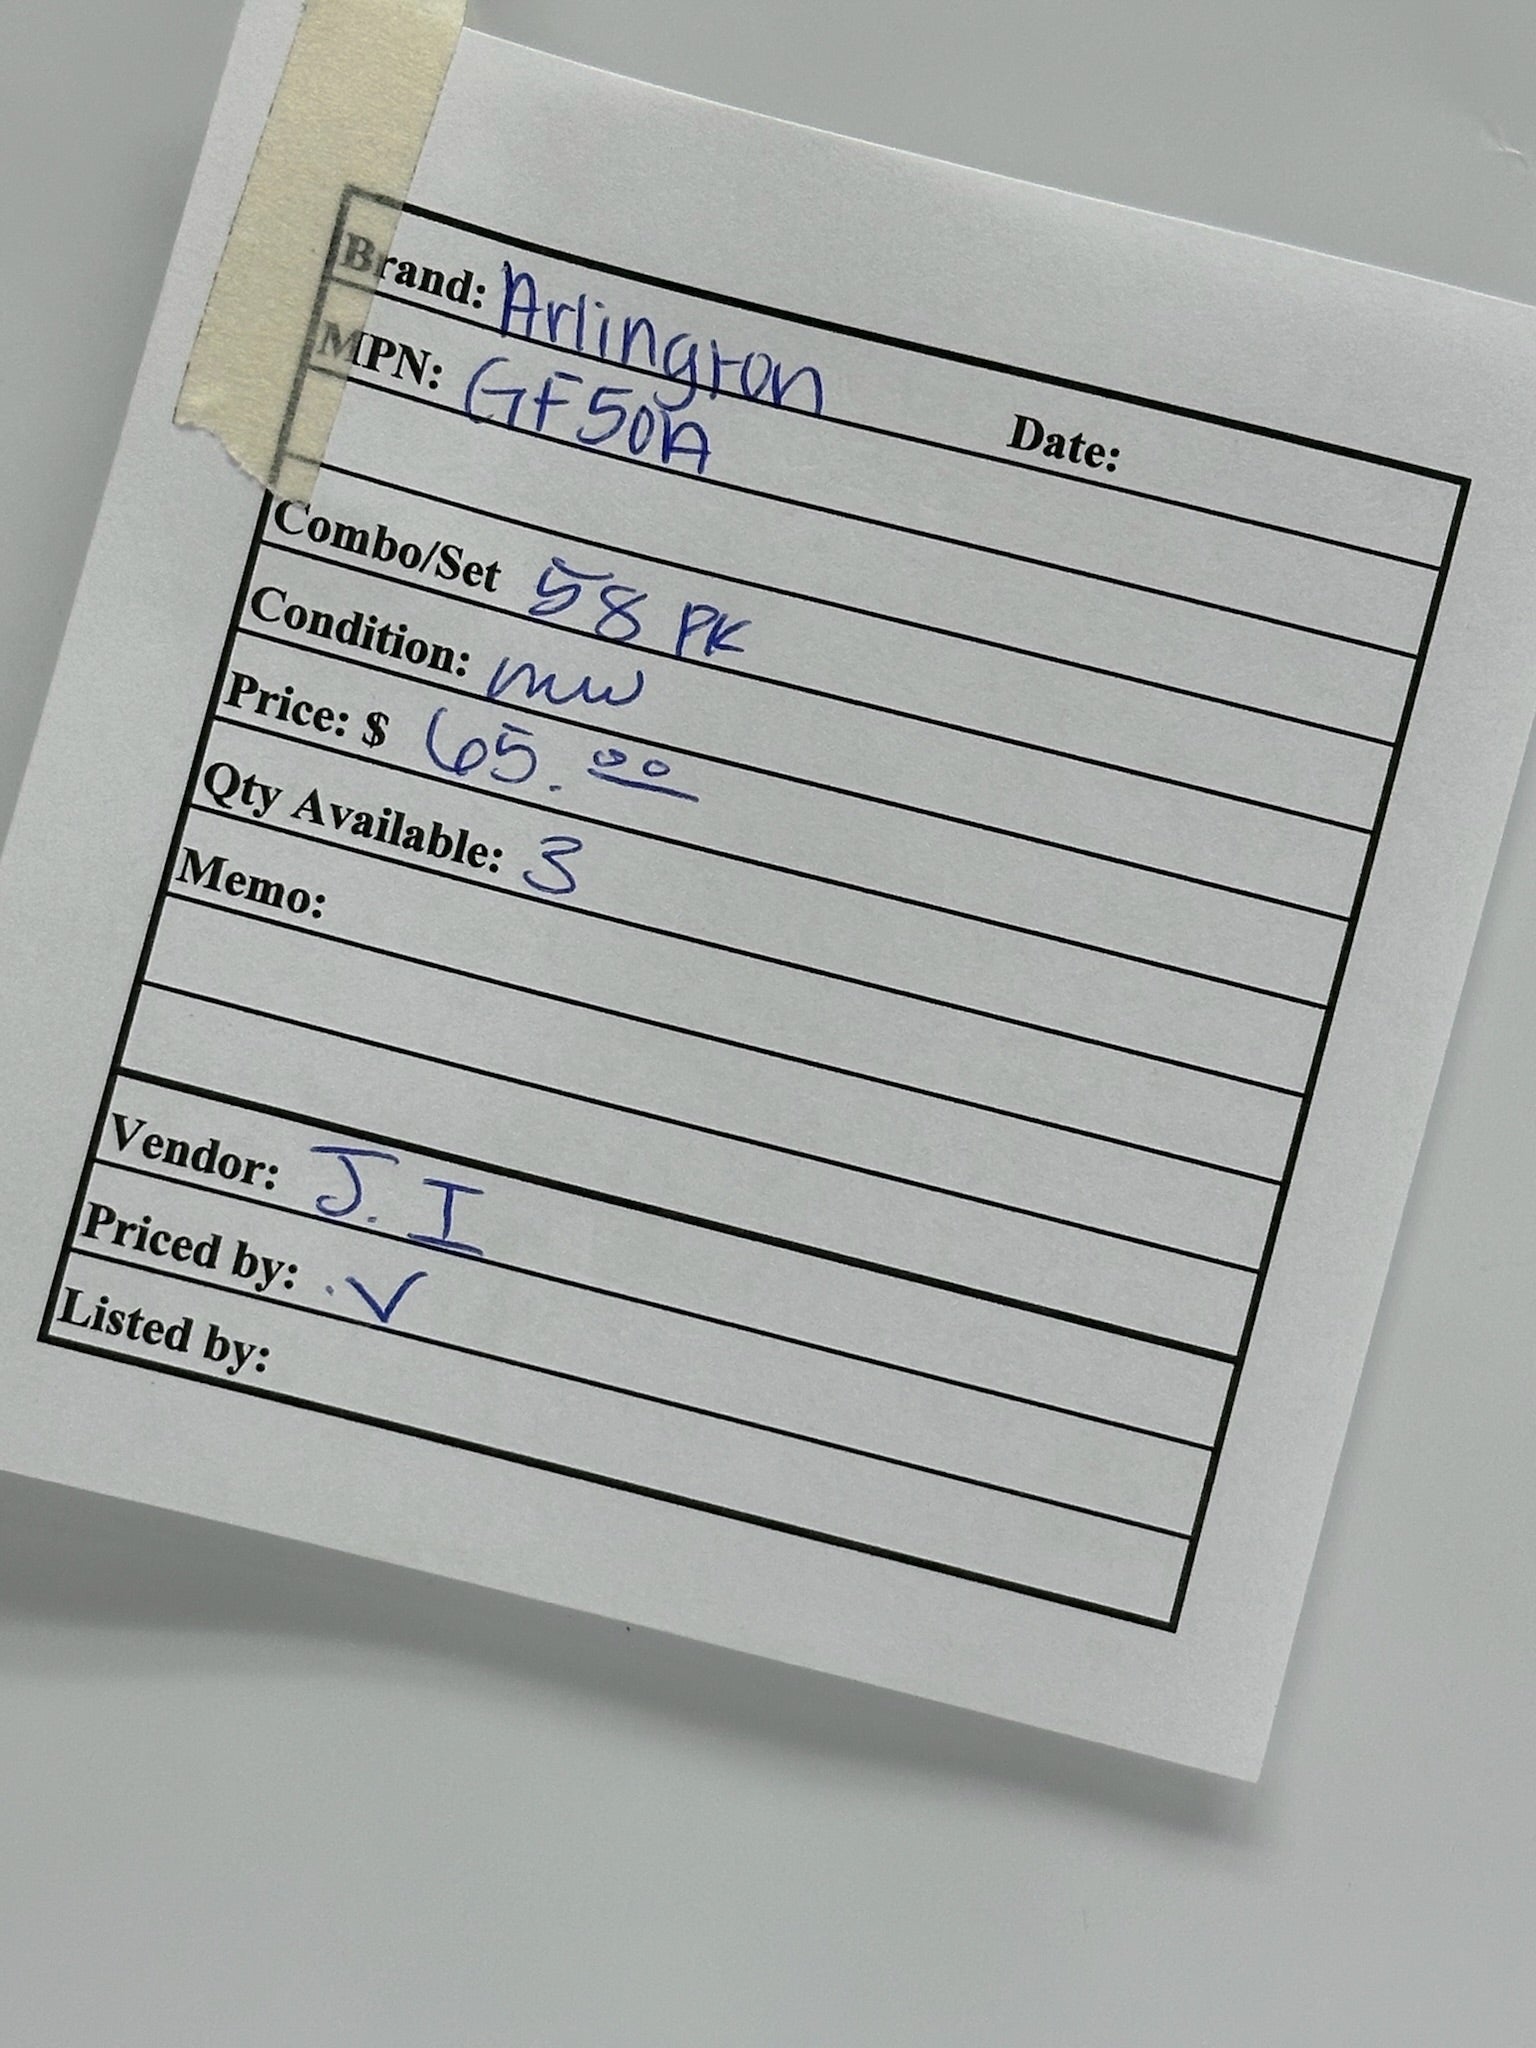 Brand: Arlington
Date:
MPN: GF50A
Combo/Set 58 PK
Condition: nuw
Price: $ 65.00
Qty Available: 3
Memo:
Vendor: J. I
Priced by: .✓
Listed by: